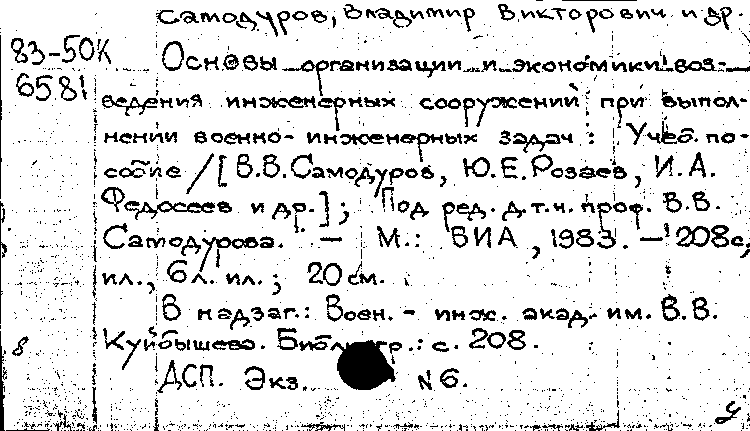 Самодуров, Владимир Викторович и др.
83-50К Основы организации и экономики воз-
6581 ведения инженерных сооружений при выпол-
нении военно-инженерных задач: Учеб. по-
собие / [В.В.Самодуров, Ю.Е.Розаев, И.А.
Федосеев и др.]; Под ред. д.т.н. проф. В.В.
Самодурова. - М.: ВИА, 1983. - 208с,
ил., 6 л. ил.; 20 см.
В надзаг.: Воен.-инж. акад. им. В.В.
8 Куйбышева. Библиогр.: с. 208.
ДСП. Экз. N 6.